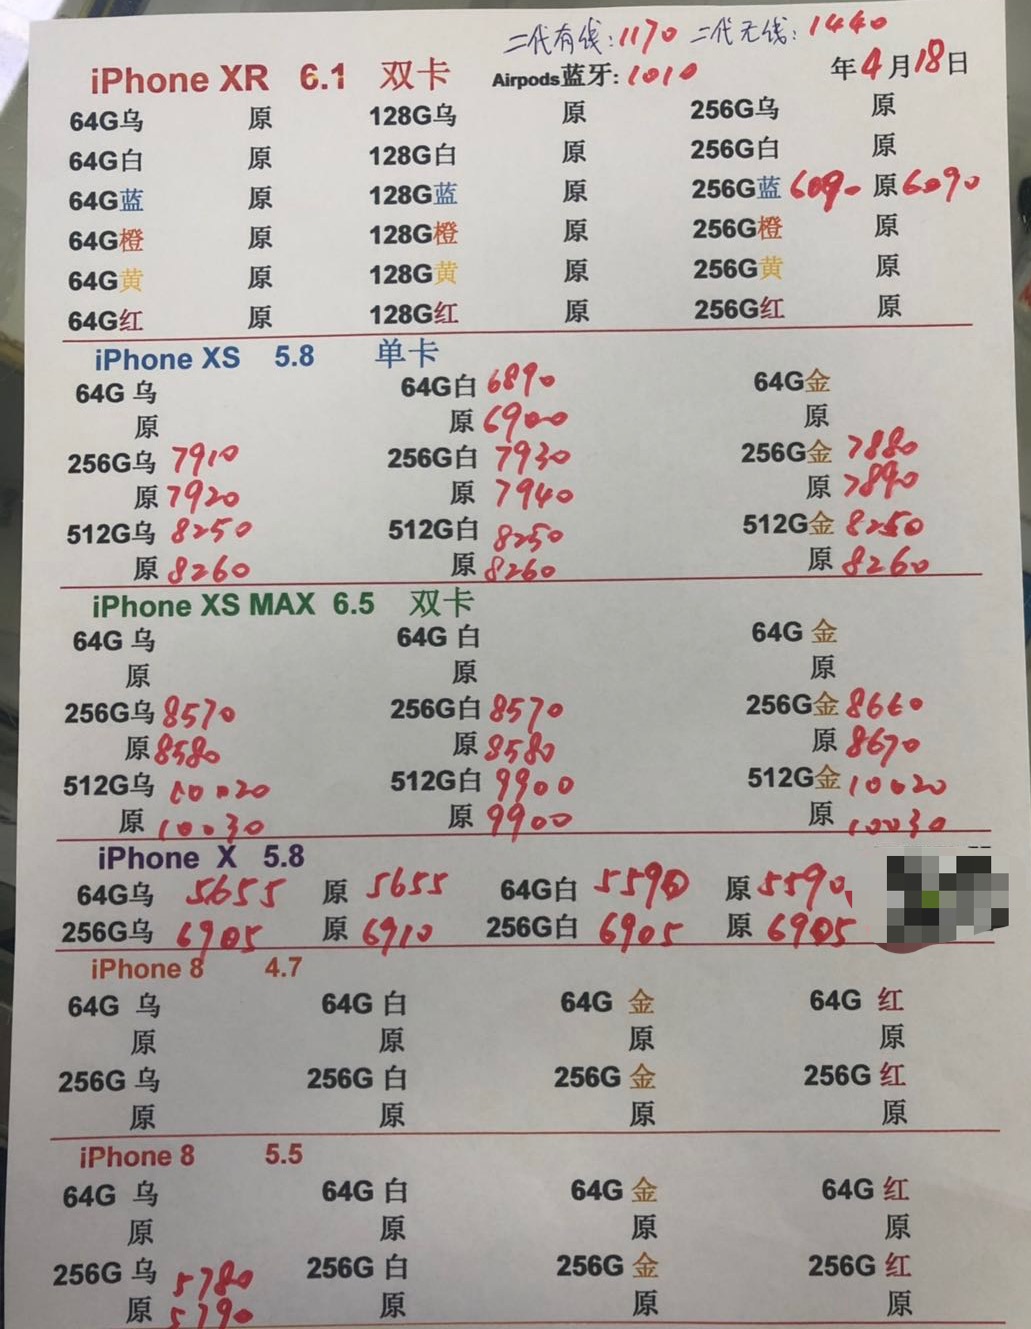 二代有线:1170 二代无线:1440
iPhone XR 6.1 双卡 Airpods蓝牙:1010 年4月18日
64G乌 原 128G乌 原 256G乌 原
64G白 原 128G白 原 256G白 原
64G蓝 原 128G蓝 原 256G蓝 6090 原6090
64G橙 原 128G橙 原 256G橙 原
64G黄 原 128G黄 原 256G黄 原
64G红 原 128G红 原 256G红 原
iPhone XS 5.8 单卡
64G 乌 64G白 6890 64G金
原 原 6900 原
256G乌 7910 256G白 7930 256G金 7880
原 7920 原 7940 原 7890
512G乌 8250 512G白 8250 512G金 8250
原 8260 原 8260 原 8260
iPhone XS MAX 6.5 双卡
64G 乌 64G 白 64G 金
原 原 原
256G乌 8570 256G白 8570 256G金 8660
原 8580 原 8580 原 8670
512G乌 10020 512G白 9900 512G金 10020
原 10030 原 9900 原 10030
iPhone X 5.8
64G乌 5655 原 5655 64G白 5590 原 5590
256G乌 6905 原 6910 256G白 6905 原 6905
iPhone 8 4.7
64G 乌 64G 白 64G 金 64G 红
原 原 原 原
256G 乌 256G 白 256G 金 256G 红
原 原 原 原
iPhone 8 5.5
64G 乌 64G 白 64G 金 64G 红
原 原 原 原
256G 乌 5780 256G 白 256G 金 256G 红
原 5790 原 原 原